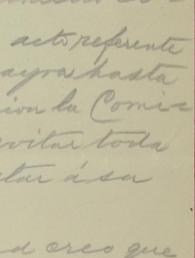 acto referente
hasta
ion la Comi
evitar toda
tar á su
d creo que